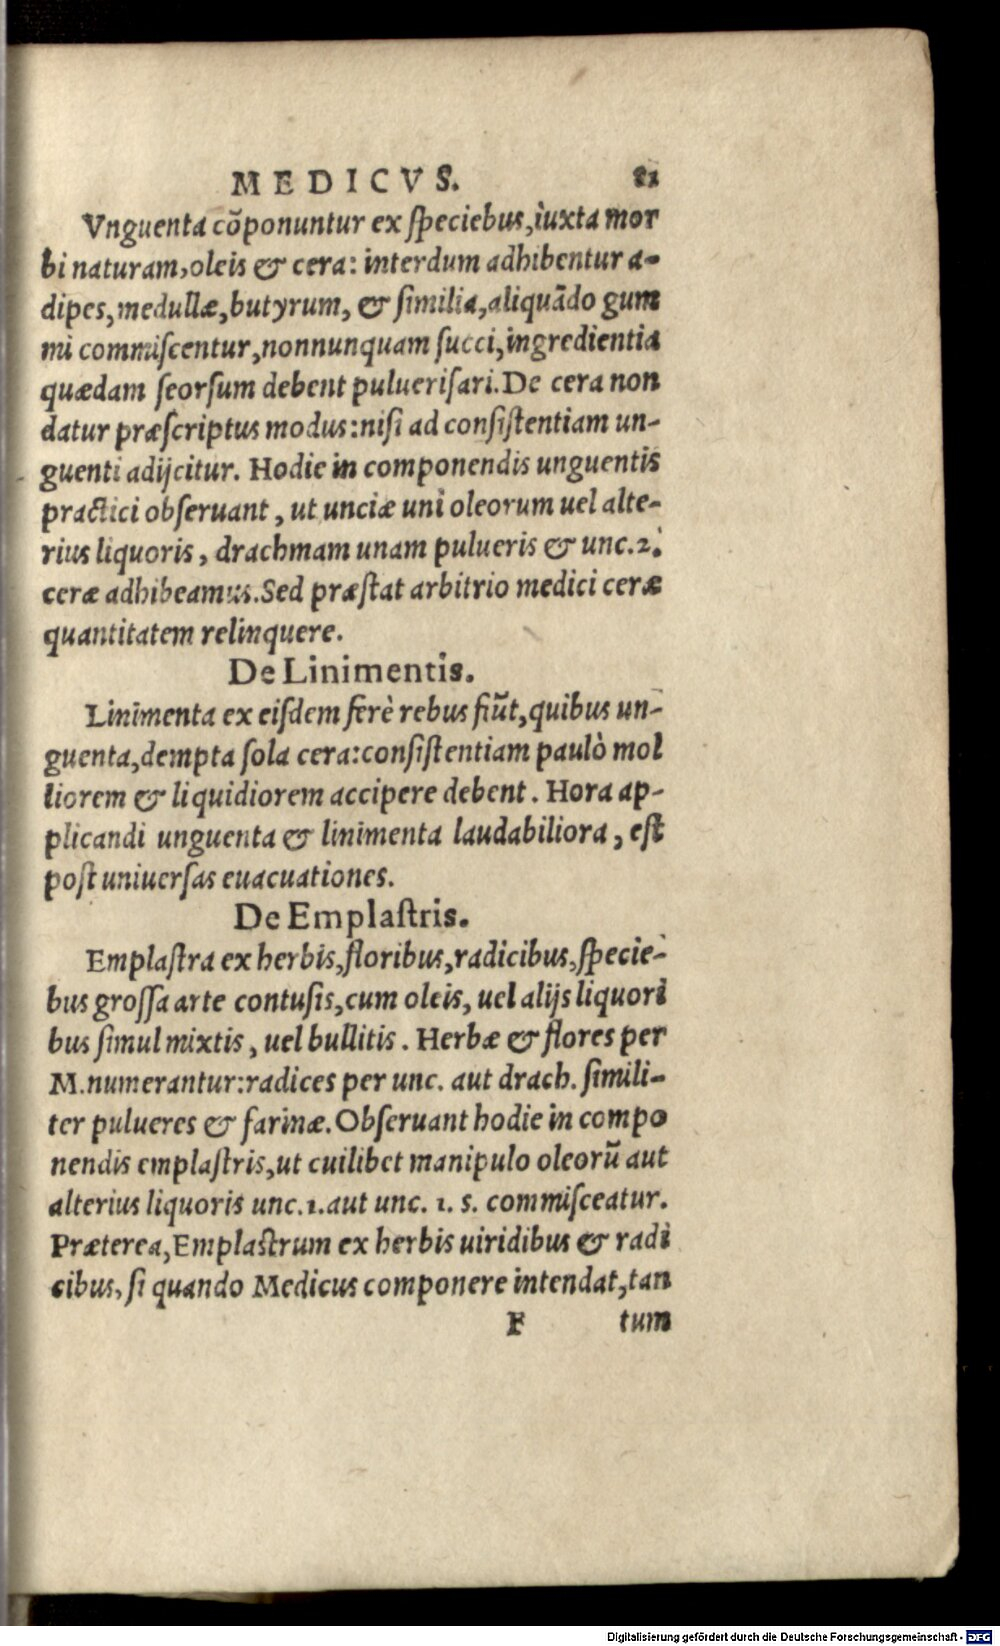 MEDICVS. 81
Vnguenta cõponuntur ex ſpeciebus, iuxta mor
bi naturam, oleis & cera: interdum adhibentur a-
dipes, medullæ, butyrum, & ſimilia, aliquãdo gum
mi commiſcentur, nonnunquam ſucci, ingredientia
quædam ſeorſum debent pulueriſari. De cera non
datur præſcriptus modus: niſi ad conſiſtentiam un-
guenti adijcitur. Hodie in componendis unguentis
practici obſeruant, ut unciæ uni oleorum uel alte-
rius liquoris, drachmam unam pulueris & unc. 2.
ceræ adhibeamus. Sed præſtat arbitrio medici ceræ
quantitatem relinquere.
De Linimentis.
Linimenta ex eiſdem ferè rebus fiũt, quibus un-
guenta, dempta ſola cera: conſiſtentiam paulò mol
liorem & liquidiorem accipere debent. Hora ap-
plicandi unguenta & linimenta laudabiliora, eſt
poſt uniuerſas euacuationes.
De Emplaſtris.
Emplaſtra ex herbis, floribus, radicibus, ſpecie-
bus groſſa arte contuſis, cum oleis, uel alijs liquori
bus ſimul mixtis, uel bullitis. Herbæ & flores per
M. numerantur: radices per unc. aut drach. ſimili-
ter pulueres & farinæ. Obſeruant hodie in compo
nendis emplaſtris, ut cuilibet manipulo oleorũ aut
alterius liquoris unc. 1. aut unc. 1. s. commiſceatur.
Præterea, Emplaſtrum ex herbis uiridibus & radi
cibus, ſi quando Medicus componere intendat, tan
F tum
Digitalisierung gefördert durch die Deutsche Forschungsgemeinschaft - DFG